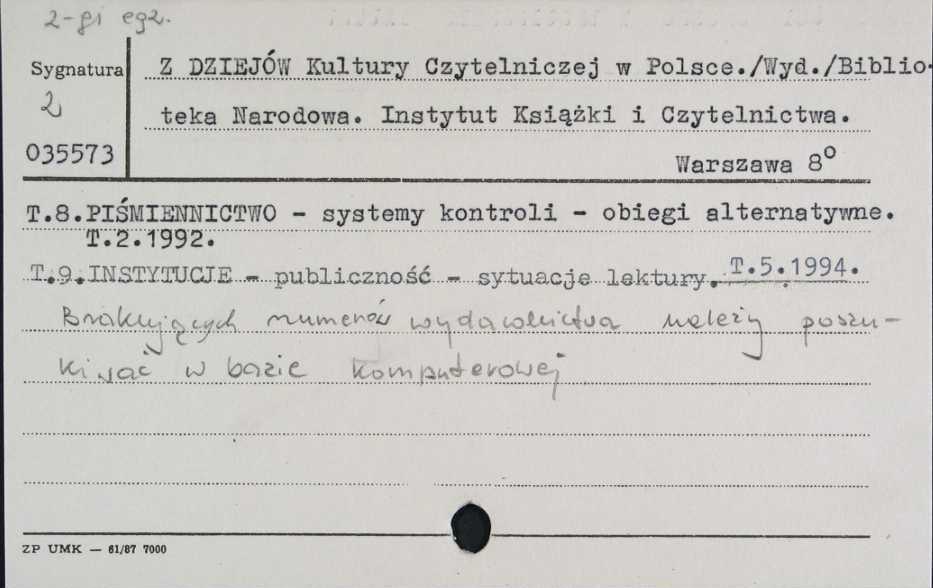 2-gi egz.
Sygnatura
2
035573
Z DZIEJÓW Kultury Czytelniczej w Polsce./Wyd./Biblio-
teka Narodowa. Instytut Książki i Czytelnictwa.
Warszawa 8°
T.8.PIŚMIENNICTWO - systemy kontroli - obiegi alternatywne.
T.2.1992.
T.9.INSTYTUCJE - publiczność - sytuacje lektury. T.5.1994.
Brakujących numerów wydawnictwa należy poszu-
kiwać w bazie komputerowej
ZP UMK — 61/87 7000